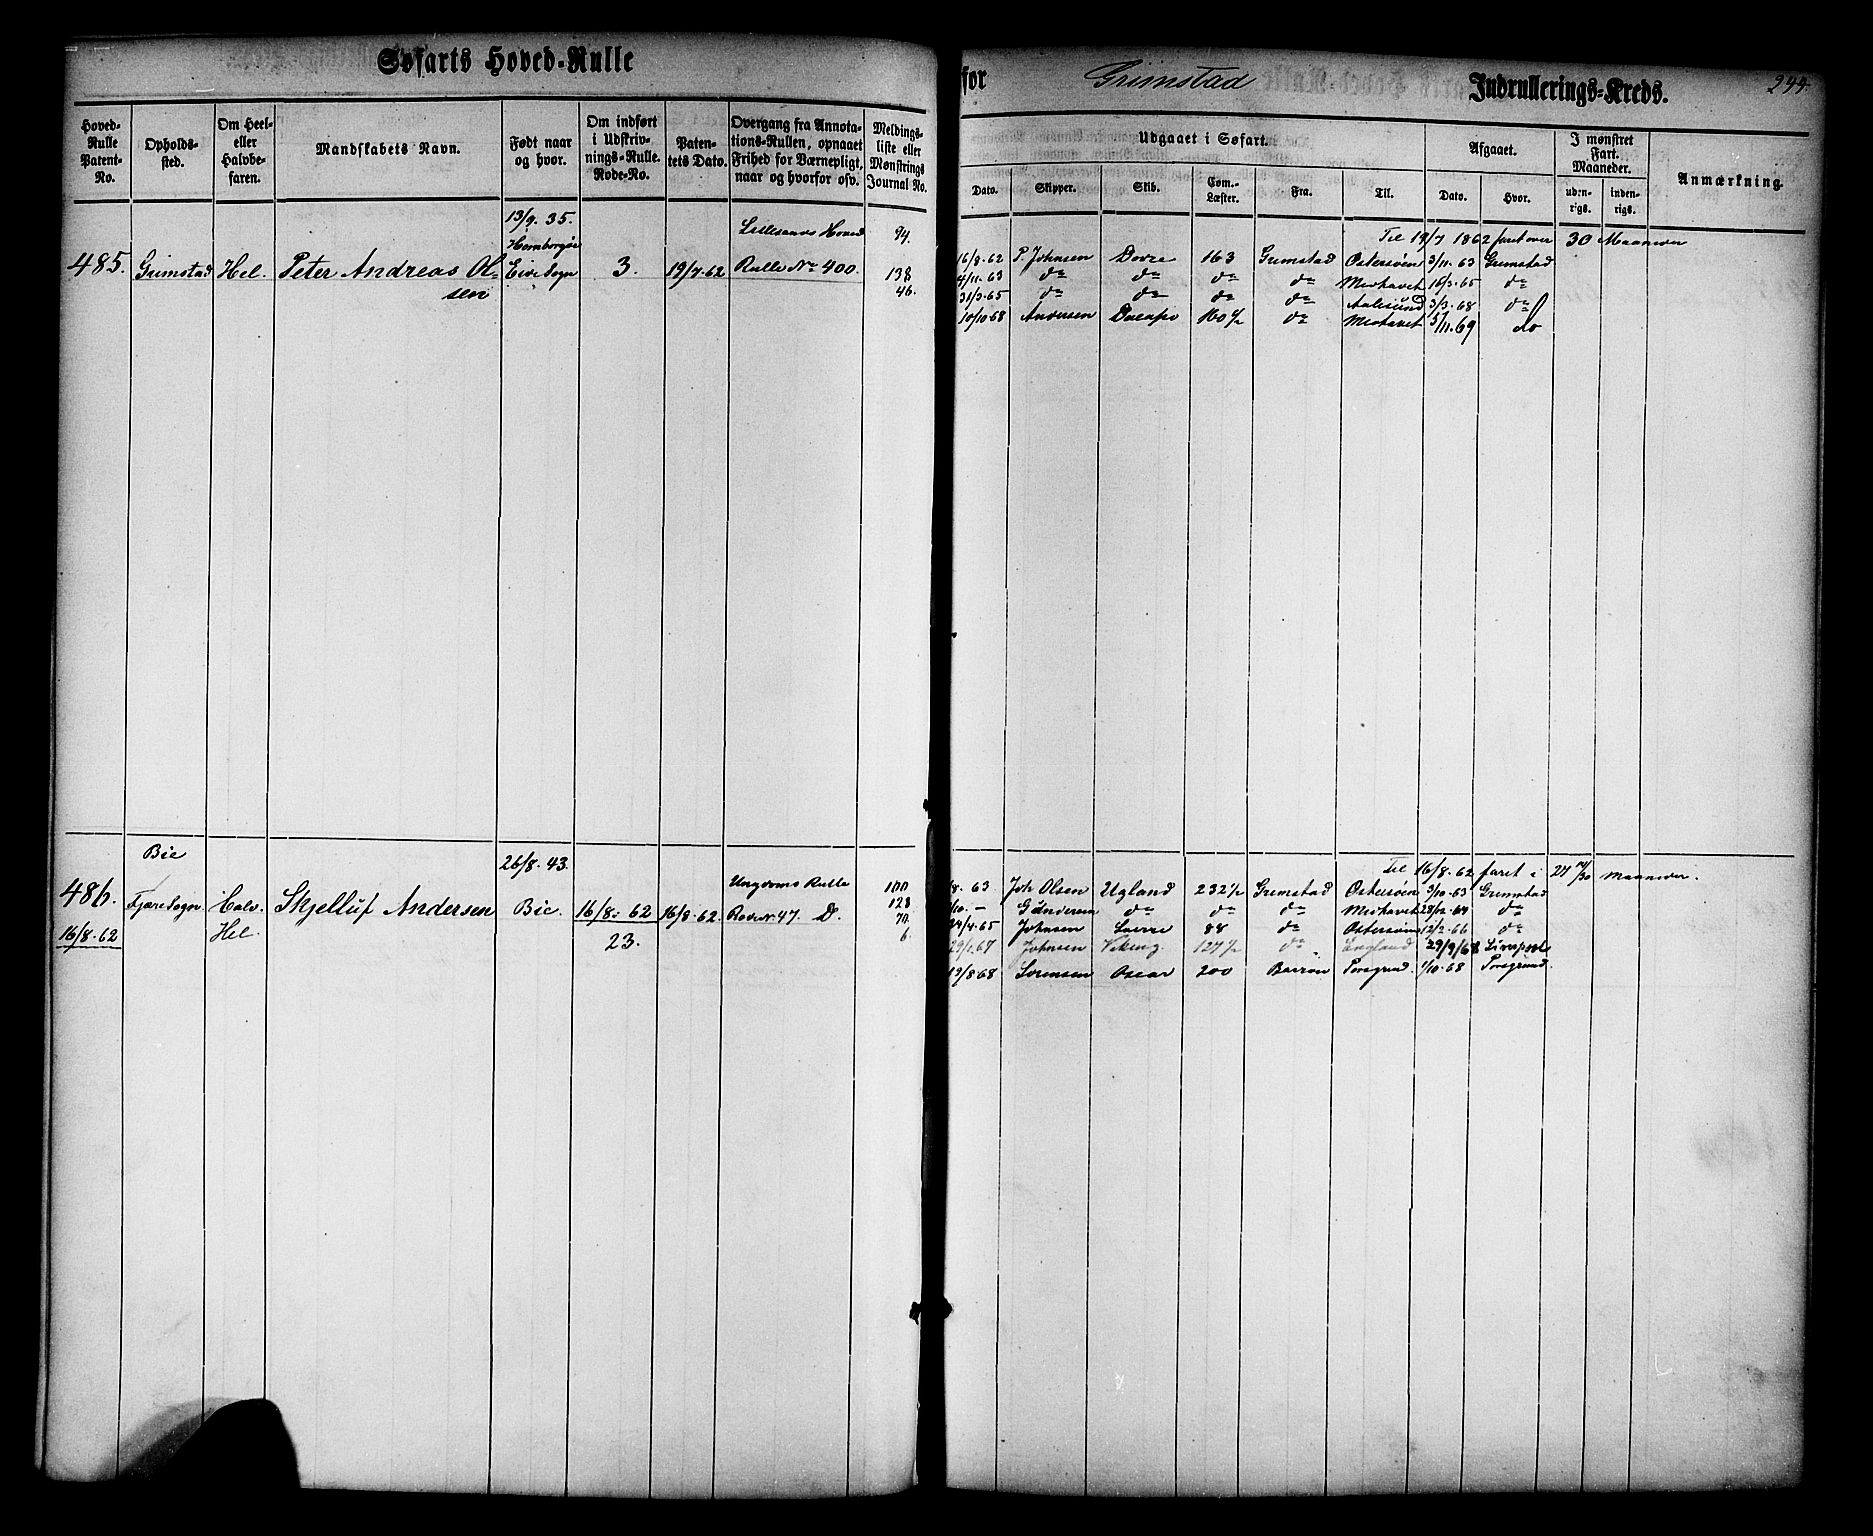 Søfarts Hoved-Rulle
for Grimstad Indrullerings-Kreds. 244.
Hoved-Rulle Patent-No.
Opholds-sted.
Om Heel- eller Halvbe-faren.
Mandskabets Navn.
Født naar og hvor.
Om indført i Udskriv-nings-Rulle. Rode-No.
Paten-tets Dato.
Overgang fra Annota-tions-Rullen, opnaaet Frihed for Værnepligt, naar og hvorfor osv.
Meldings-liste eller Mønstrings Journal No.
Udgaaet i Søfart.
Dato. Skipper. Skib. Com.-Læster. Fra. Til.
Afgaaet.
Dato. Hvor.
I mønstret Fart. Maaneder.
uden-rigs. inden-rigs.
Anmærkning.
13/9. 35.
Lillesands Hoved 94.
485. Grimstad Hel. Peter Andreas Ol- Eive Sogn 3. 19/7.62 Rulle No 400. 138
sen 46.
Til 19/7 1862 faret over 30 Maaneder
16/8.62 P. Johnsen Dovre 163 Grimstad Østersøen 3/11.63 Grimstad
4/11.63 do do do do Midhavet 16/3.65 do
31/3.65 do do do do Aalesund 3/3.68 do
10/10.68 Andersen 160 1/2 do Midhavet 5/11.69 do
Bie
26/8.43.
Ungdoms Rulle 100
486. Fjære Sogn Halv. Skjelluf Andersen Bie. 16/8. 62 16/8.62. Rode No. 47. D. 128
16/8.62 Hel. 23. 70.
6.
Til 16/8.62 faret i 27 14/30 Maaneder.
/8. 63 Joh Olsen Ugland 232 1/2 Grimstad Østersøen 3/10.63 Grimstad
/10. — Gundersen do do do Midhavet 28/12.64 do
24/4.65 Johnsen 88 do Østersøen 12/2.66 do
29/1.67 Johnsen Viking. 127 1/2 do England 29/9/68 Liverpool
19/8.68 Sørensen Oscar 200 Porsgrund. 1/10.68 Porsgrund.